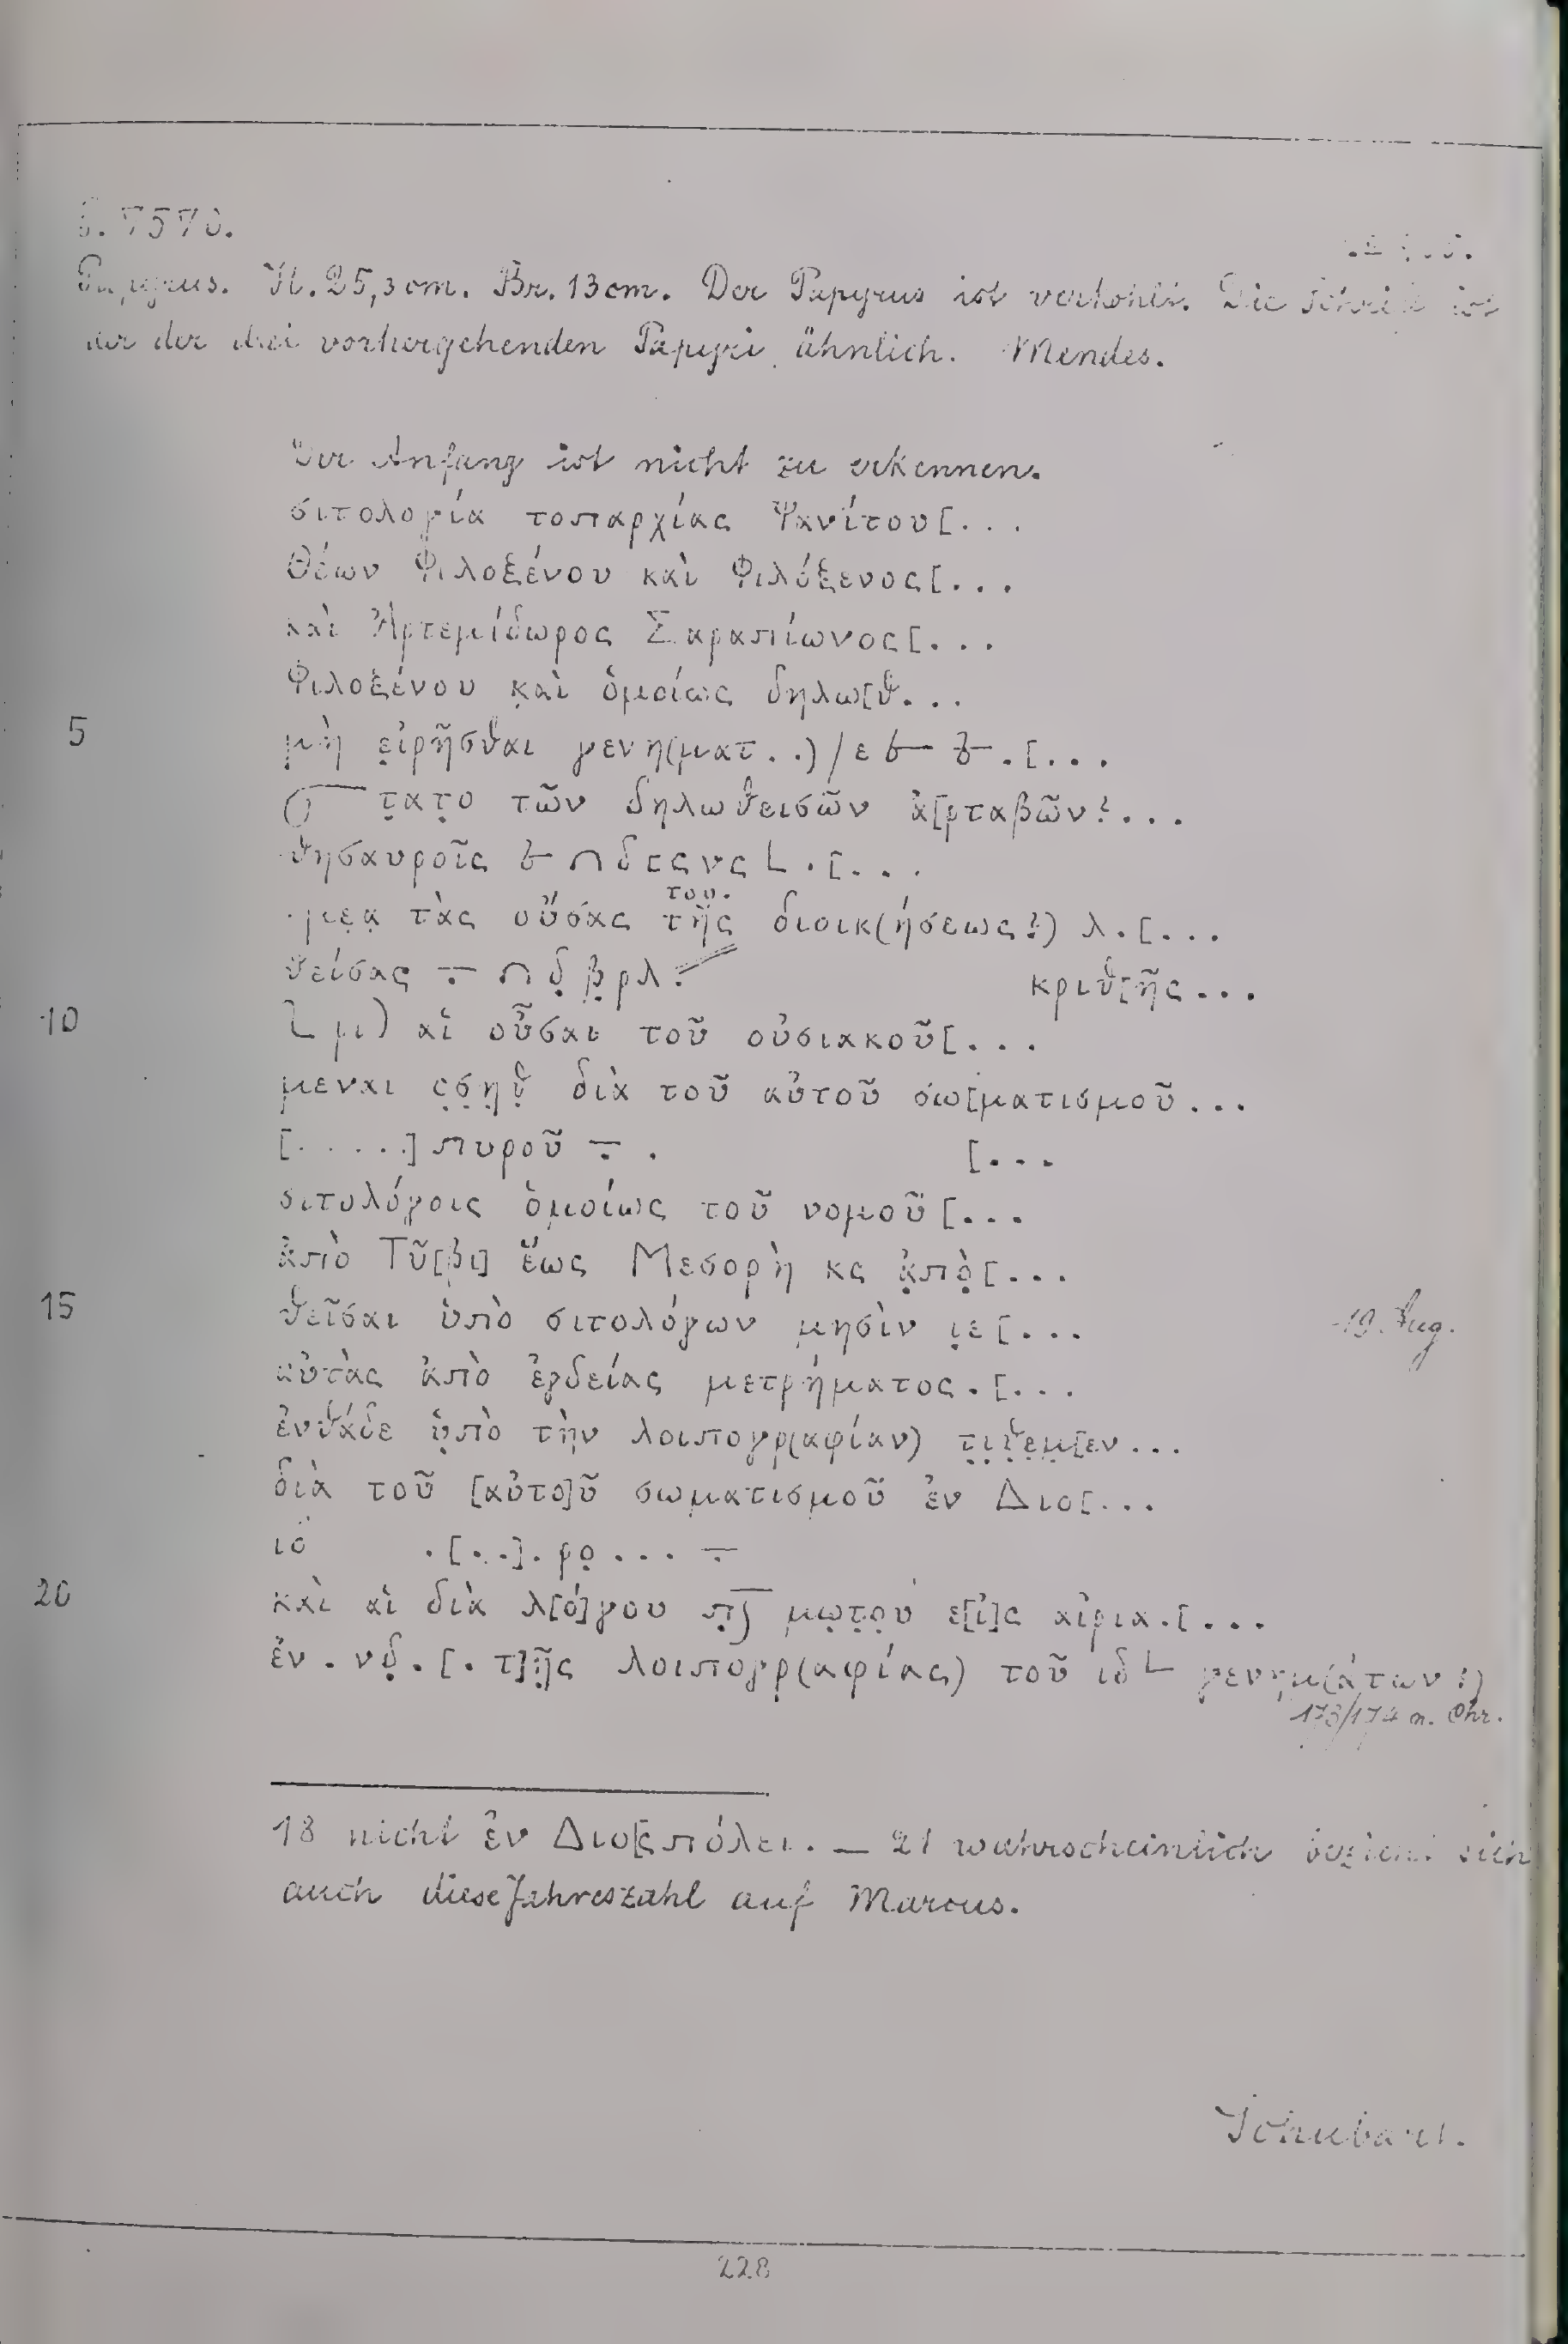 P. 7570.
Papyrus. H. 25,3 cm. Br. 13 cm. Der Papyrus ist verkohlt. Die Schrift ist
der drei vorhergehenden Papyri ähnlich. Mendes.
Der Anfang ist nicht zu erkennen.
σιτολογία τοπαρχίας Ψανίτου[...
Θέων Φιλοξένου καὶ Φιλόξενος[...
καὶ Ἀρτεμίδωρος Σαραπίωνος[...
Φιλοξένου κ̣αὶ ὁμοίως δηλω[θ...
5 μὴ ε̣ἰρῆσθαι γενη(ματ..)/ε .[...
τ̣ατ̣ο τῶν δηλωθεισῶν ἀ[ρταβῶν?...
θησαυροῖς
του.
τὰς οὔσας τῆς διοικ(ήσεως?) λ.[...
θείσας δ̣ β̣ρλ. κριθ[ῆς...
10 αἱ οὖσαι τοῦ οὐσιακοῦ[...
μεναι ς̣σ̣η̣θ̣ διὰ τοῦ αὐτοῦ σω[ματισμοῦ...
[.....] πυροῦ . [...
σιτολόγοις ὁμοίως τοῦ νομοῦ[...
ἀπὸ Τῦ[βι] ἕως Μεσορὴ κς ἀ̣πὸ̣[...
15 θεῖσαι ὑπὸ σιτολόγων μησὶν ι̣ε[... 19. Aug.
αὐτὰς ἀπὸ ἐγδείας μετρήματος.[...
ἐνθάδε ὑ̣πὸ τὴν λοιπογρ(αφίαν) τ̣ι̣θ̣ε̣μ̣[εν...
διὰ τοῦ [αὐτο]ῦ σωματισμοῦ ἐν Διο[...
ιδ .[..].ρο̣...
20 καὶ αἱ διὰ λ[ό]γου μω̣τ̣ο̣υ ε[ἰ]ς αἱρια.[...
ἐν.νδ̣.[.τ]ῆ̣ς λοιπογρ̣(αφίας) τοῦ ιδ L γενημ(άτων?)
173/174 n. Chr.
18 nicht ἐν Διο[ς πόλει. — 21 wahrscheinlich bezieht sich
auch diese Jahreszahl auf Marcus.
Schubart.
228